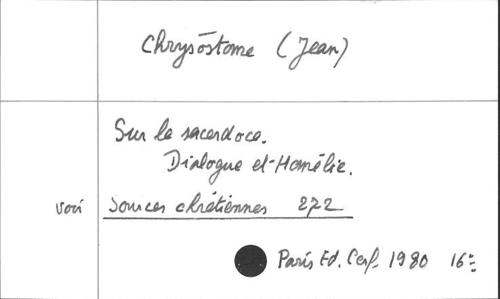 Chrysostome (Jean)
Sur le sacerdoce.
Dialogue et Homélie.
voir Sources chrétiennes 272
Paris Ed. Cerf. 1980 16°